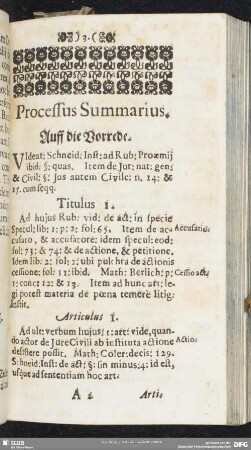 )3.(
Processus Summarius.
Auff die Vorrede.
VIdeat: Schneid: Inst: ad Rub: Proœmij
ibid: §: quas. Item de Jur: nat: gen:
& Civil: §: Jus autem Civile: n. 14: &
15. cum seqq.
Titulus 1.
Ad hujus Rub: vid: de act: in specie
Specul; lib: 1: p: 2: fol: 65. Item de ac- Accusatio:
cusato, & accusatore: idem specul: eod:
fol: 73: & 74: & de actione, & petitione.
Idem lib: 2: fol: 2: ubi pulchra de actionis
cessione: fol: 11: ibid. Math: Berlich: p: Cessio act:
1: conc: 12: & 13. Item ad hunc art: le-
gi potest materia de pœna temerè litig:
Articulus 1.
Ad ult: verbum hujus; 1: art: vide, quan-
do actor de Jure Civili ab instituta actione Actio
desistere possit. Math: Coler: decis: 129.
Schneid: Inst: de act: §: sin minus: 4: id est,
usque ad sententiam hoc art.
A 2 Arti-